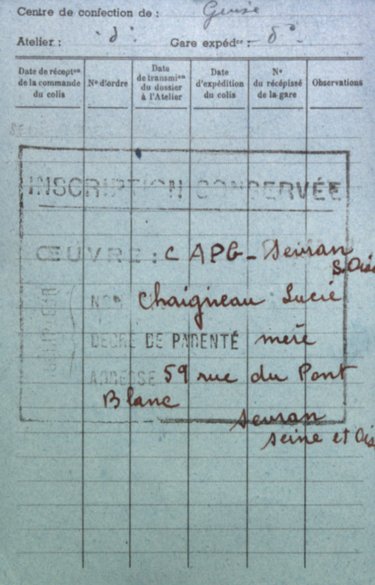 Centre de confection de : Guise
Atelier : d° Gare expédre : d°
Date de récepton de la commande du colis
N° d'ordre
Date de transmion du dossier à l'Atelier
Date d'expédition du colis
N° du récépissé de la gare
Observations
INSCRIPTION CONSERVÉE
ŒUVRE : CAPG - Sevran
S. Oise
NOM Chaigneau Lucie
DEGRE DE PARENTÉ mère
ADRESSE 59 rue du Pont
Blanc
Sevran
Seine et Oise